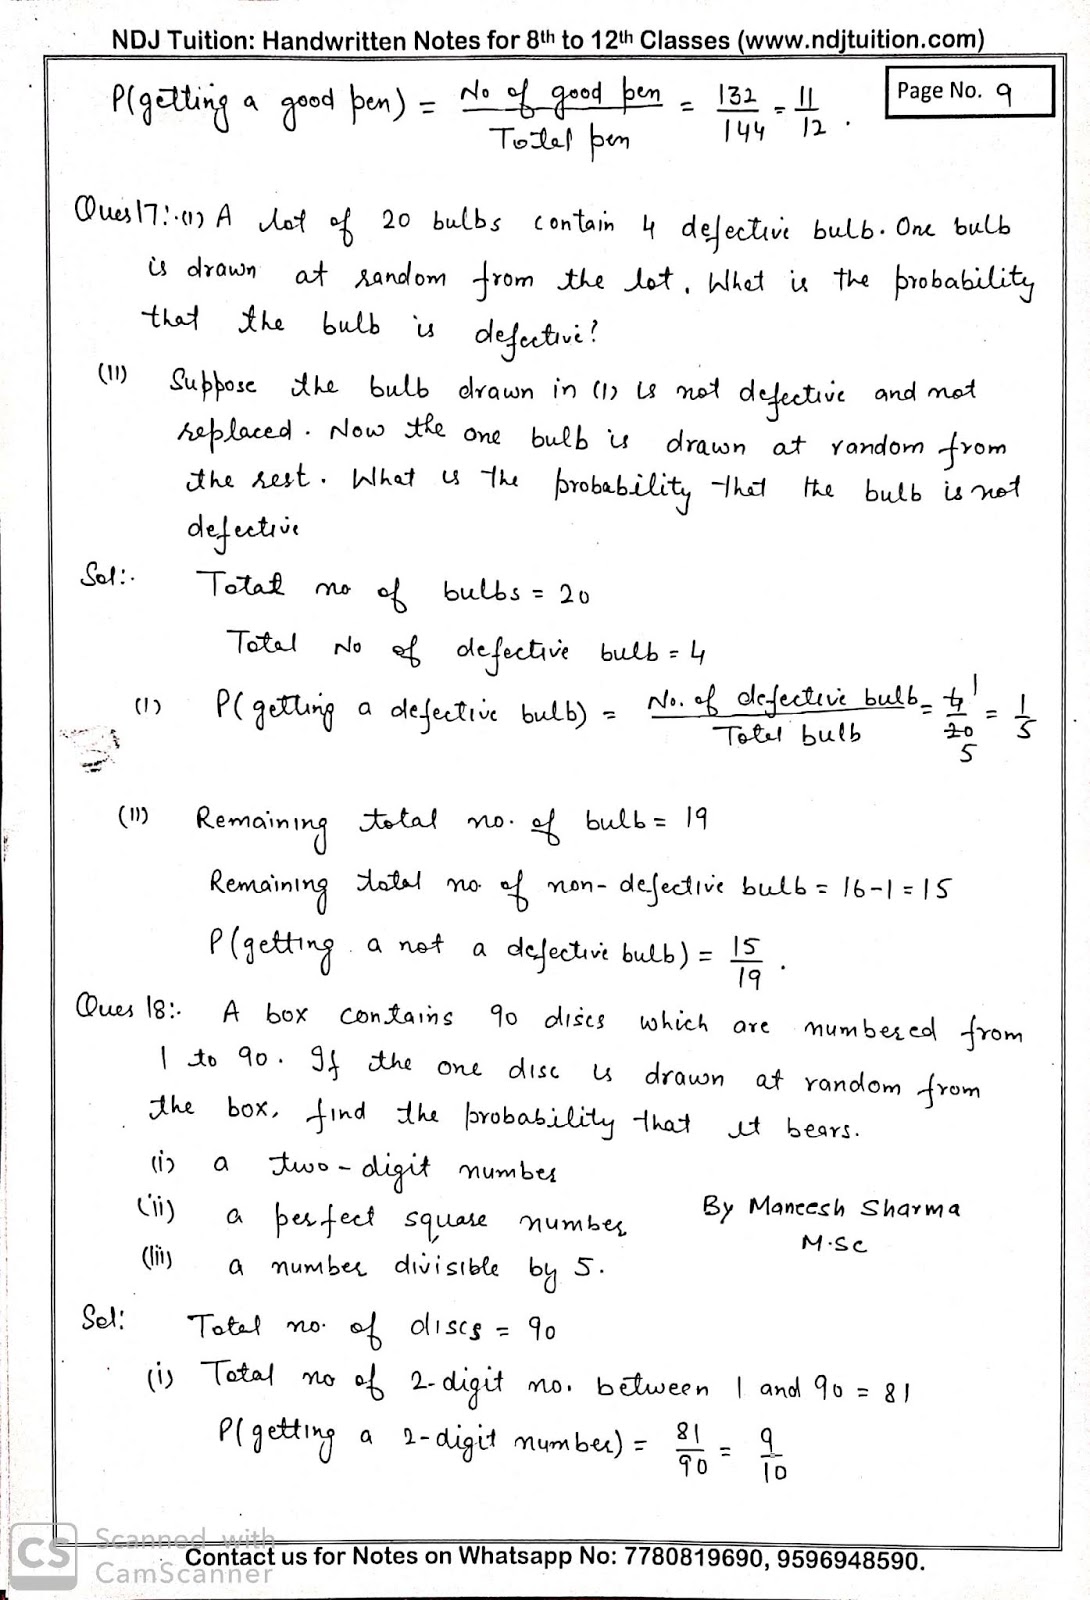 NDJ Tuition: Handwritten Notes for 8th to 12th Classes (www.ndjtuition.com)
Page No. 9
P(getting a good pen) = No of good pen / Total pen = 132/144 = 11/12 .
Ques 17:-(1) A lot of 20 bulbs contain 4 defective bulb. One bulb
is drawn at random from the lot. What is the probability
that the bulb is defective?
(11) Suppose the bulb drawn in (1) is not defective and not
replaced. Now the one bulb is drawn at random from
the rest. What is the probability that the bulb is not
defective
Sol:- Total no of bulbs = 20
Total No of defective bulb = 4
(1) P(getting a defective bulb) = No. of defective bulb / Total bulb = 4 1/20 5 = 1/5
(11) Remaining total no. of bulb = 19
Remaining total no. of non-defective bulb = 16-1 = 15
P(getting a not a defective bulb) = 15/19 .
Ques 18:- A box contains 90 discs which are numbered from
1 to 90. If the one disc is drawn at random from
the box, find the probability that it bears.
(i) a two-digit number
(ii) a perfect square number
By Maneesh Sharma
M.Sc
(iii) a number divisible by 5.
Sol: Total no. of discs = 90
(i) Total no of 2-digit no. between 1 and 90 = 81
P(getting a 2-digit number) = 81/90 = 9/10
CS Scanned with
CamScanner
Contact us for Notes on Whatsapp No: 7780819690, 9596948590.